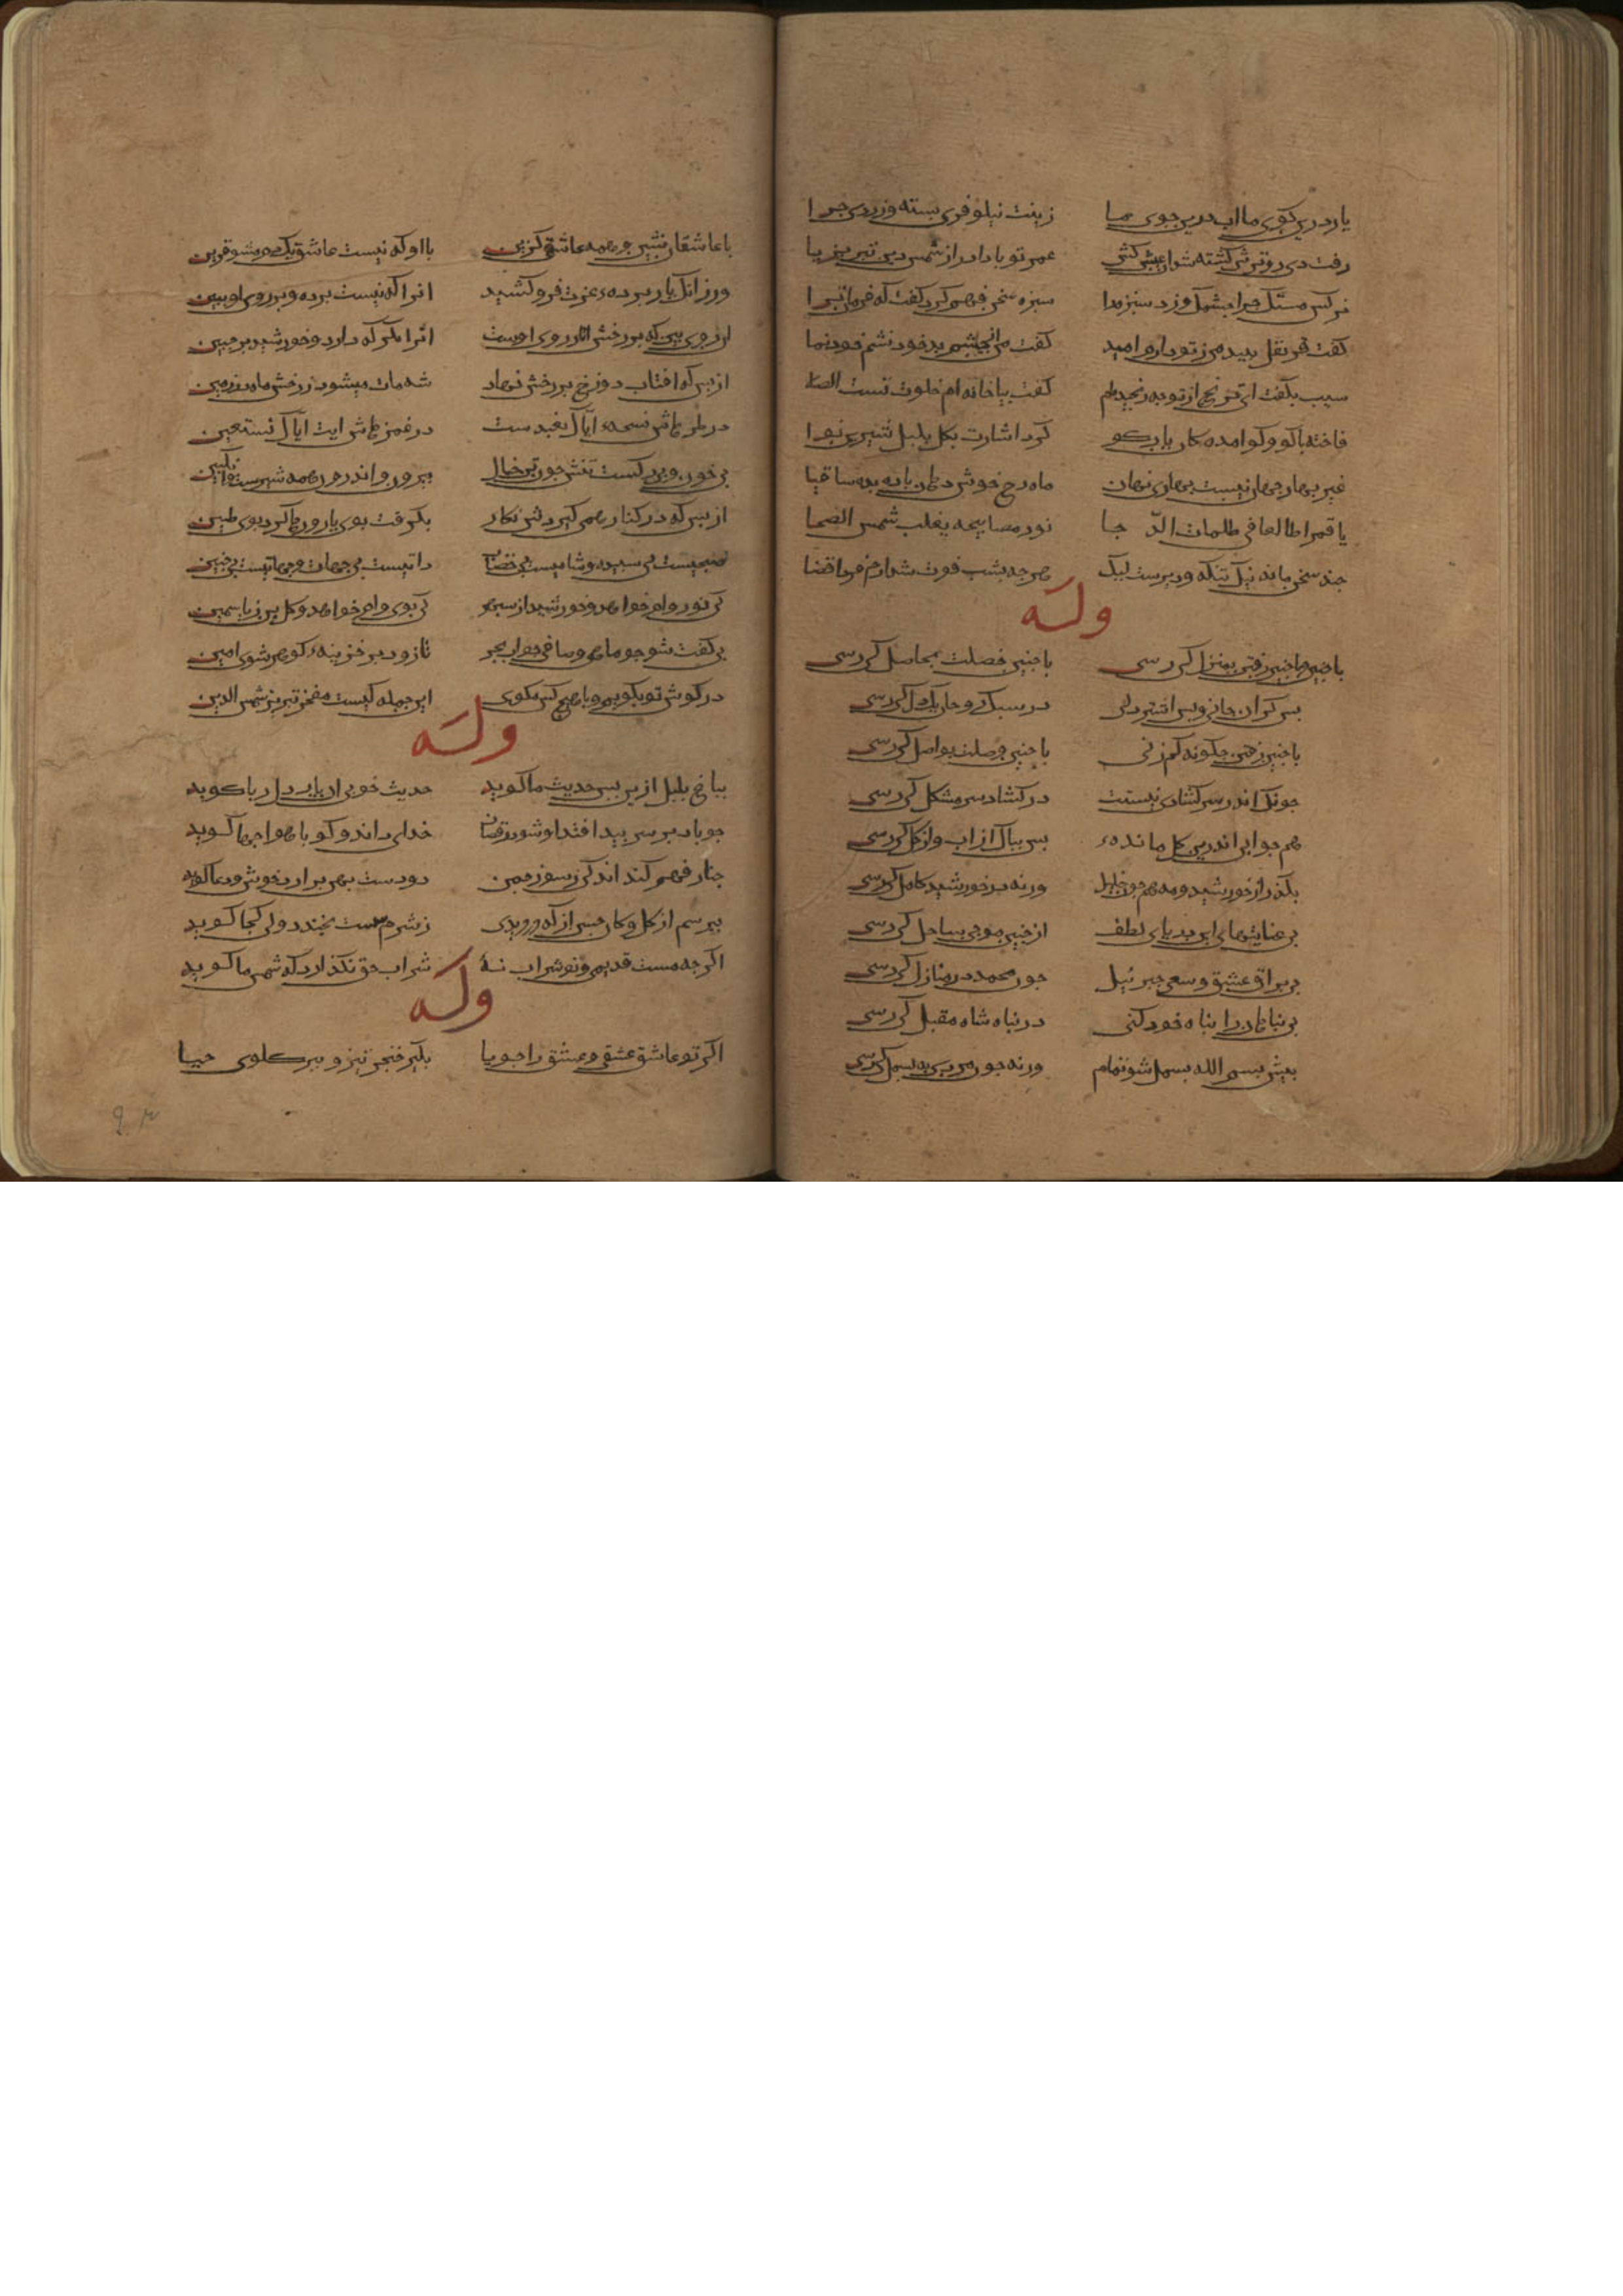 یار درین کوی ما اب درین جوی ما زینت نیلوفری بسته و زردی جرا
رفت دی رو ترش کشته شد ان عیش کش عمر تو بادا دراز شمس دین تبریز یا
نرکس مستک جرا جشمک زد سبزه را سبزه سخن فهم کرد کفت که فرمان ترا
کفت قرنفل ببید من ز تو دارم امید کفت من انجشم بد خود نشم خودنما
سیب بکفت ای ترنج از تو به رنجیده‌ام کفت بیا خانه ام خلوت تست الصلا
فاخته با کو و کو امده کان یار کو کرد اشارت بکل بلبل شیرین نوا
غیر بهار جهان نیست بهاری نهان ماه رخ خوش دهان باده بده ساقیا
یا قمرا طالعا فی ظلمات الدجا نور مصابیحه یغلب شمس الضحا
جند سخن ماند نیک تنکه و دیرست لیک هرجه بشب فوت شد ارم فردا قضا
وله
با جنین رفتن بمنزل کی رسی با جنین خصلت بحاصل کی رسی
بس کران جانی و بس اشتر دلی در سبک روحان یکدل کی رسی
با جنین رفتن جکونه کم زنی با جنین وصلت بواصل کی رسی
جونک اندر سر کشادی نیستت در کشاد سر مشکل کی رسی
همجو ابی اندرین کل مانده‌ء بس بپاک از اب و از کل کی رسی
بکذر از خورشید و مه همجو خلیل ورنه در خورشید کامل کی رسی
بی عنایتهای ان دریای لطف از جنین موجی بساحل کی رسی
بی براق عشق و سعی جبرئیل جون محمد در منازل کی رسی
بی پناهانرا پناه خود کنی در پناه شاه مقبل کی رسی
پیش بسم الله بسمل شو تمام ورنه جون مردی به بسمل کی رسی
با عاشقان نشین و همه عاشقی کزین با او که نیست عاشق یکدم مشو قرین
ورزانک یار پرده‌ء عزت فرو کشید انرا که نیست پرده و بر روی او ببین
ان روی بین که بر رخش اثار روی اوست انرا نکر که دارد خورشید بر جبین
از بس که افتاب دو رخ بر رخش نهاد شه مات میشود ز رخش ماه بر زمین
در طره‌هاش نسخه‌ء ایاک نعبدست در غمزهاش ایت ایاک نستعین
بی خون و بی رکست تنش جون تن خیال بیرون و اندرون همه شهدست و انکبین
از بس که در کنار همی کیردش نکار بکرفت بوی یار و رها کرد بوی طین
صبحیست بی سپیده و شامیست بی خضاب ذاتیست بی جهات و حیاتیست بی حنین
کی نور وام خواهد خورشید از سپهر کی بوی وام خواهد کل بن ز یاسمین
بی کفت شو جو ماهی و صافی جو اب بحر تا زود بر خزینه‌ء کوهر شوی امین
در کوش تو بکویم و با هیج کس مکوی این جمله کیست مفخر تبریز شمس الدین
وله
بباغ بلبل ازین بس حدیث ما کوید حدیث خوبی ان یار دلربا کوید
جو باد بر سر بید افتد و شود رقصان خدای داند کو با هوا جها کوید
جنار فهم کند اندکی ز سوز جمن دو دست بهن برارد خوش و دعا کوید
بپرسم از کل کان حسن از که دزدیدی ز شرم مست بخندد ولی کجا کوید
اکرجه مست قدیمی و نو شراب نهٔ شراب حق نکذارد که شمس ما کوید
وله
اکر تو عاشق عشقی و عشق را جویا بکیر خنجر تیز و ببر کلوی حیا